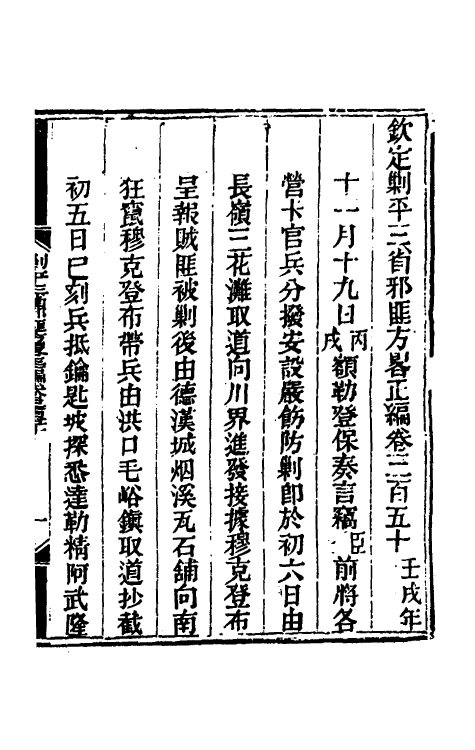 欽定剿平三省邪匪方畧正編卷三百五十 壬戌年
十一月十九日丙戌額勒登保奏言竊臣前將各
營卡官兵分撥安設嚴飭防剿即於初六日由
長嶺三花灘取道向川界進發接據穆克登布
呈報賊匪被剿後由德漢城烟溪瓦石舖向南
狂竄穆克登布帶兵由洪口毛峪鎭取道抄截
初五日巳刻兵抵鑰匙坡探悉達勒精阿武隆